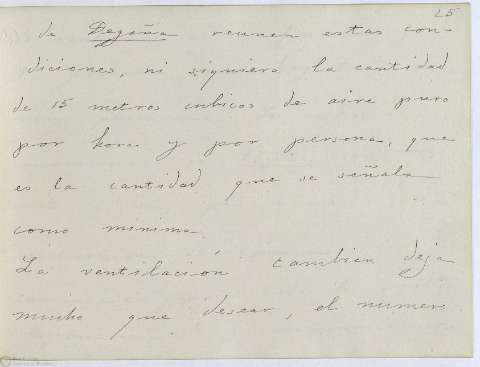 25
de Degaña reunen estas con-
diciones, ni siquiera la cantidad
de 15 metros cubicos de aire puro
por hora y por persona, que
es la cantidad que se señala
como minima.
La ventilación tambien deja
mucho que desear, el numero